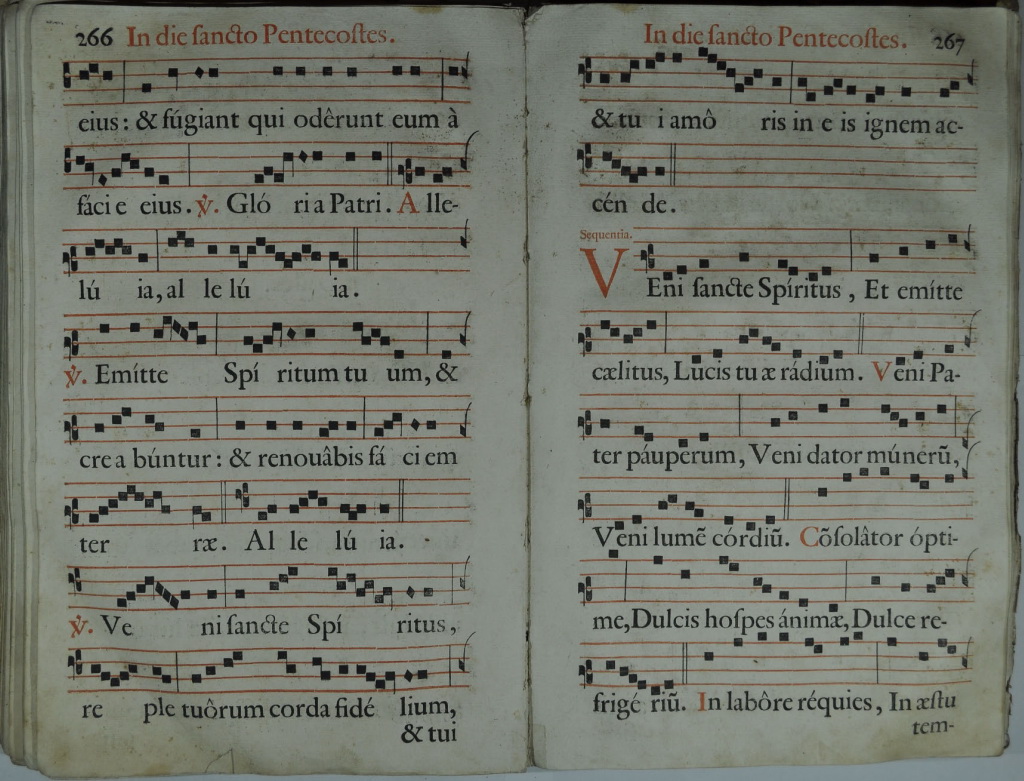 266 In die sancto Pentecostes.
eius: & fúgiant qui odêrunt eum à
fácie eius. ℣. Gló ria Patri. A lle-
lú ia, al le lú ia.
℣. Emítte Spí ritum tu um, &
crea búntur: & renouâbis fá ciem
ter ræ. Al le lú ia.
℣. Ve ni sancte Spí ritus,
re ple tuôrum corda fidé lium,
& tui
In die sancto Pentecostes. 267
& tu i amô ris in e is ignem ac-
cén de.
Sequentia.
VEni sancte Spíritus, Et emítte
cælitus, Lucis tu æ rádium. Veni Pa-
ter páuperum, Veni dator múnerũ,
Veni lumẽ córdiũ. Cõsolâtor ópti-
me, Dulcis hospes ánimæ, Dulce re-
frigé riũ. In labôre réquies, In æstu
tem-